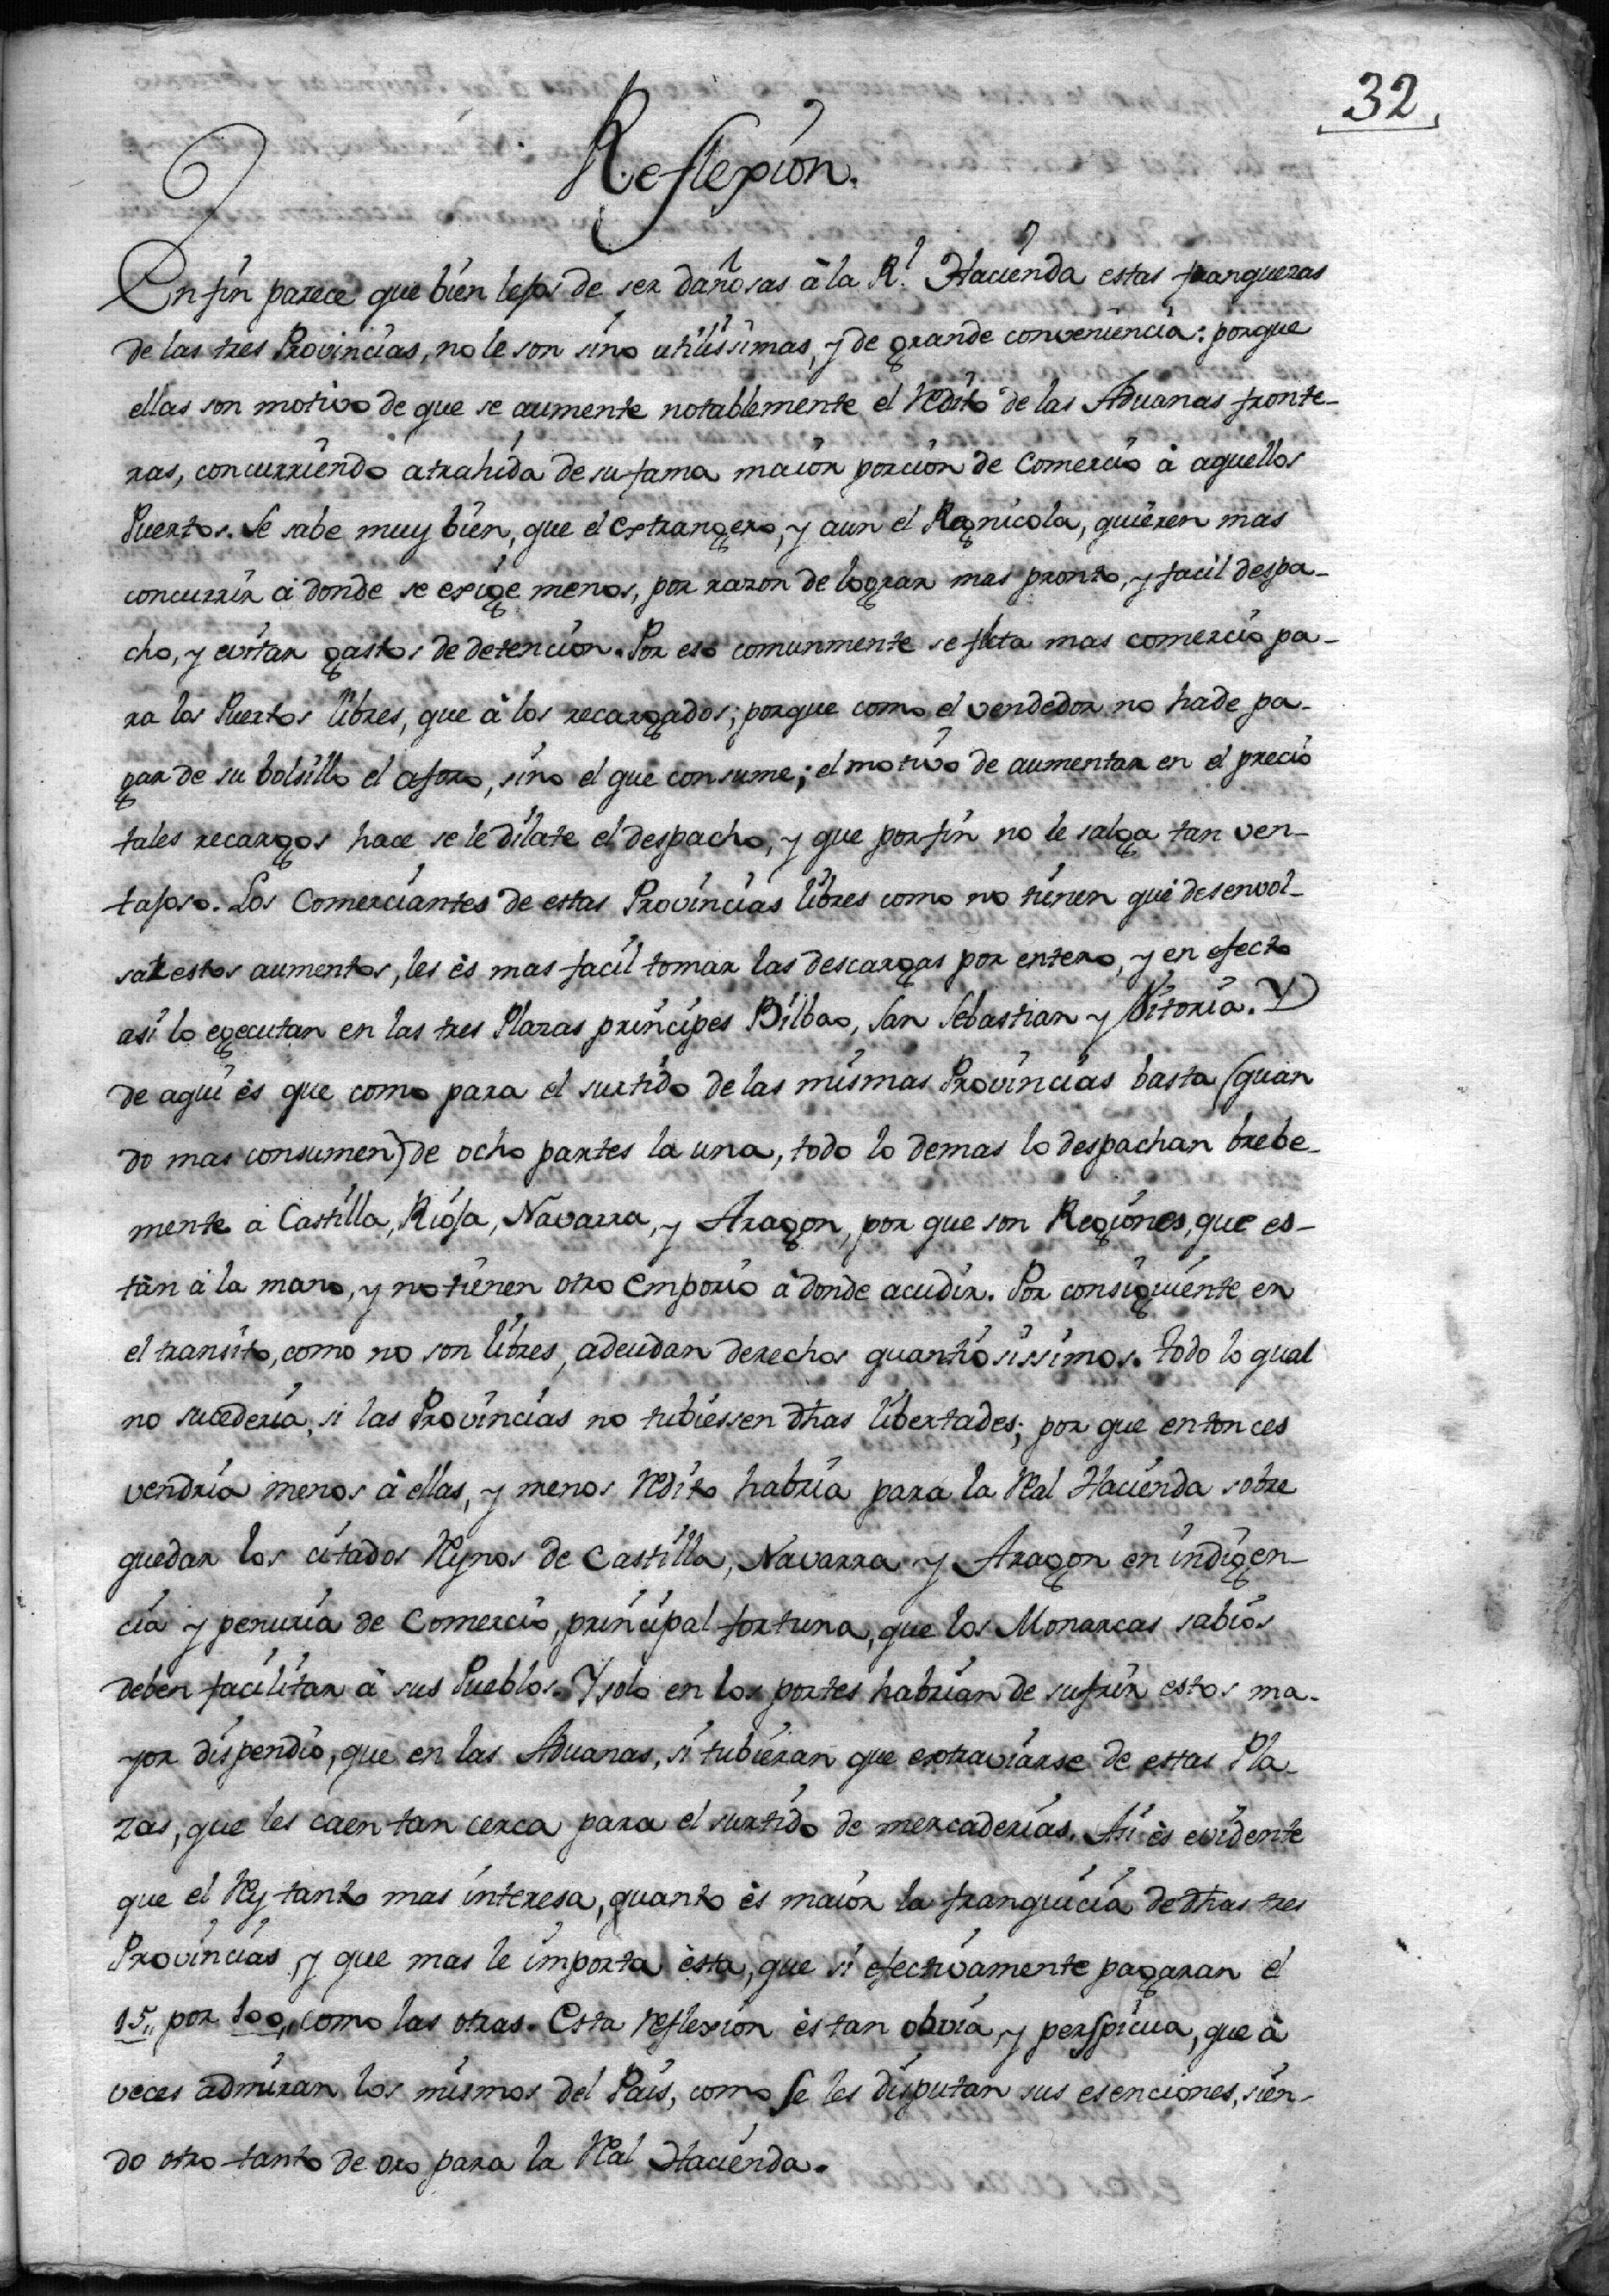 32
Reflexion.
En fin parece que bien lejos de ser dañosas à la Rl. Hacienda estas franquezas
de las tres Provincias, no le son sino utilissimas, y de grande conveniencia: porque
ellas son motivo de que se aumente notablemente el redito de las Aduanas fronte-
ras, concurriendo atrahida de su fama maior porcion de Comercio à aquellos
Puertos. Se sabe muy bien, que el extrangero, y aun el Regnicola, quieren mas
concurrir à donde se exige menos, por razon de lograr mas pronto, y facil despa-
cho, y evitar gastos de detencion. Por eso comunmente se fleta mas comercio pa-
ra los Puertos libres, que à los recargados; porque como el vendedor no hade pa-
gar de su bolsillo el aforo, sino el que consume; el motivo de aumentar en el precio
tales recargos hace se le dilate el despacho, y que por fin no le salga tan ven-
tajoso. Los Comerciantes de estas Provincias libres como no tienen que desenvol-
sar estos aumentos, les ès mas facil tomar las descargas por entero, y en efecto
asi lo egecutan en las tres Plazas principes Bilbao, San Sebastian y Vitoria. Y
de aqui ès que como para el surtido de las mismas Provincias basta (quan
do mas consumen) de ocho partes la una, todo lo demas lo despachan brebe-
mente à Castilla, Rioja, Navarra, y Aragon, por que son Regiones, que es-
tàn à la mano, y no tienen otro emporio à donde acudir. Por consiguiente en
el transito, como no son libres, adeudan derechos quantiosissimos. todo lo qual
no sucederia, si las Provincias no tubiessen dhas libertades; por que entonces
vendria menos à ellas, y menos redito habria para la Real Hacienda sobre
quedar los citados Reynos de Castilla, Navarra y Aragon en indigen-
cia y penuria de Comercio, principal fortuna, que los Monarcas sabios
deben facilitar à sus Pueblos. Y solo en los portes habrian de sufrir estos ma-
yor dispendio, que en las Aduanas, si tubieran que extraviarse de estas Pla-
zas, que les caen tan cerca para el surtido de mercaderias. Asi ès evidente
que el Rey tanto mas interesa, quanto ès maior la franquicia de dhas tres
Provincias, y que mas le importa èsta, que si efectivamente pagaran el
15,, por 100,, como las otras. Esta reflexion ès tan obvia, y perspicua, que à
veces admiran los mismos del Pais, como se les disputan sus esenciones, sien-
do otro tanto de oro para la Real Hacienda.